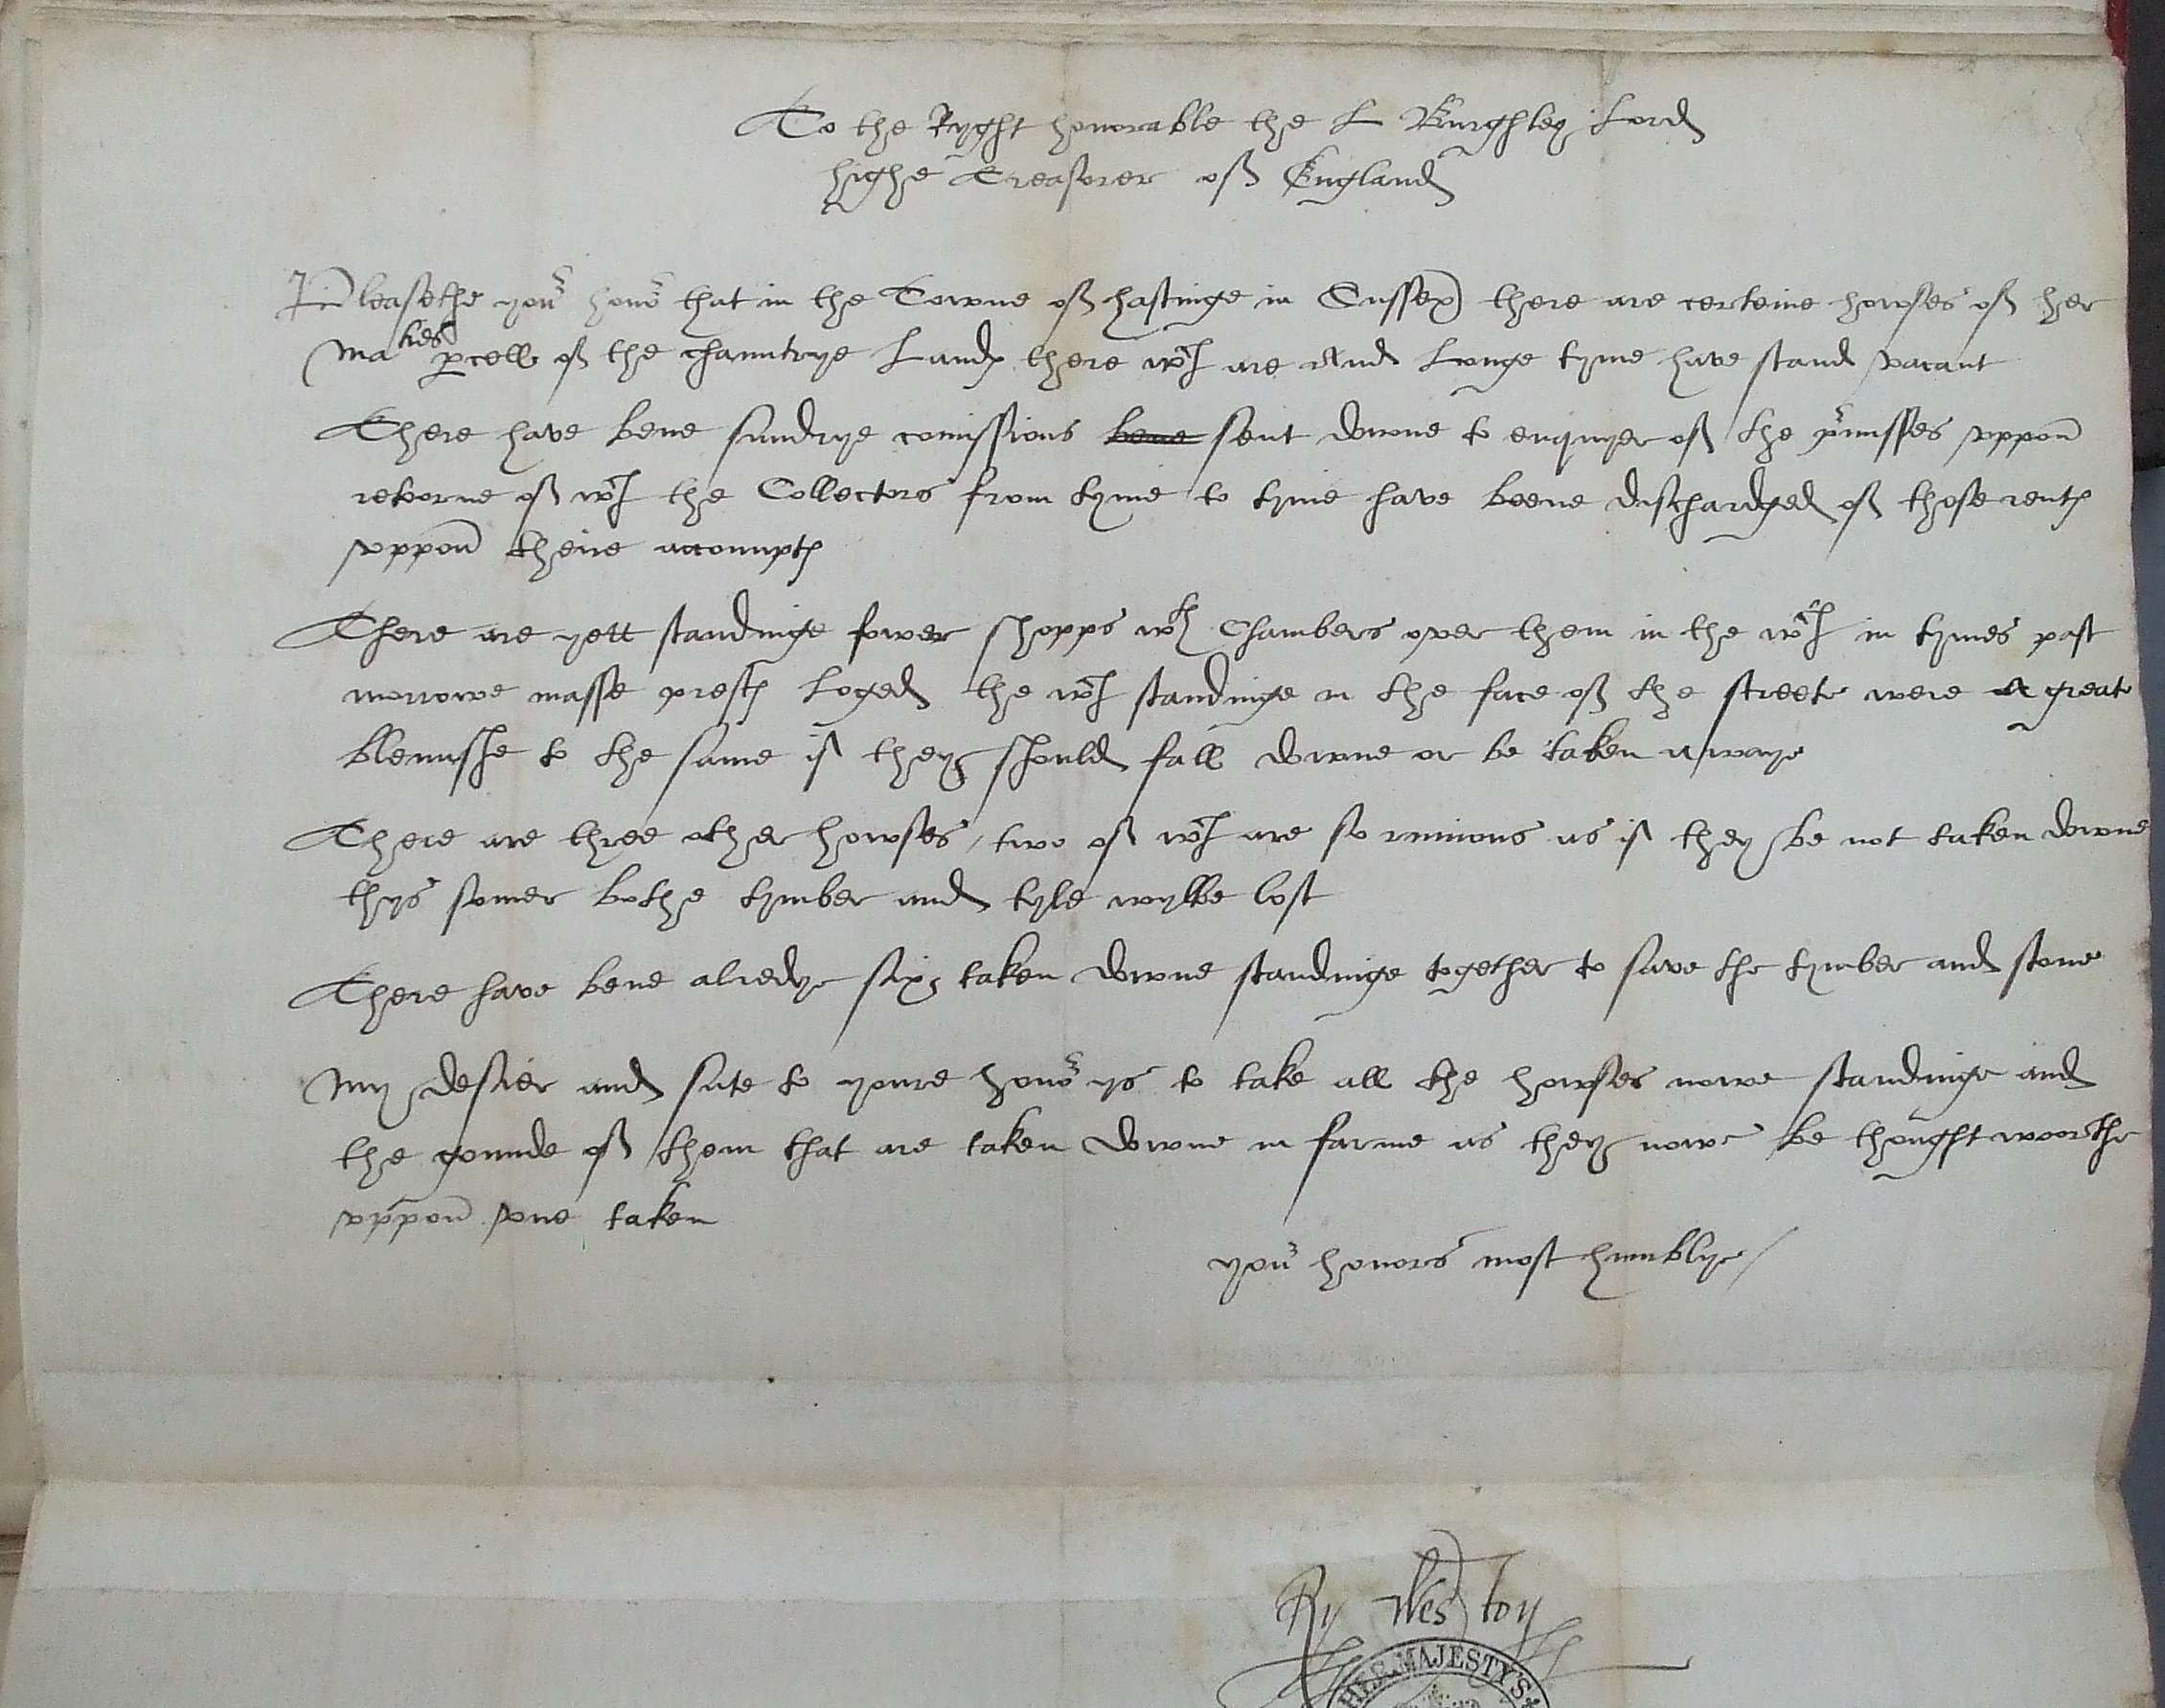 To the Ryght honorable the L Burghley Lord
highe Treasorer off England
Pleasethe your honor that in the Towne off hastinge in Sussex there are certeine howses off her
Maties pcell off the chauntrye Landes there wch are And Longe tyme have stand vacant
There have bene sundrye comissions bene sent downe to enquyer off the pmisses vppon
retorne off wch the Collectors from tyme to tyme have beene dischardged off those rentes
vppon theire accomptes
There are yett standinge fower shopps wth Chambers over them in the wch in tymes past
morrowe masse prestes Loged the wch standinge in the face off the streete were A great
blemishe to the same iff they should fall downe or be taken awaye
There are three other howses / two off wch are so ruinous as iff they be not taken downe
thys somer bothe tymber and tyle wylbe lost
There have bene alredye six taken downe standinge together to save the tymber and stone
My desier and sute to youre honor ys to take all the howses nowe standinge and
the gounde off them that are taken downe in farme as they nowe be thought woorthe
vppon vue taken
your honors most humblye /
Ry Weston
HER MAJESTY'S